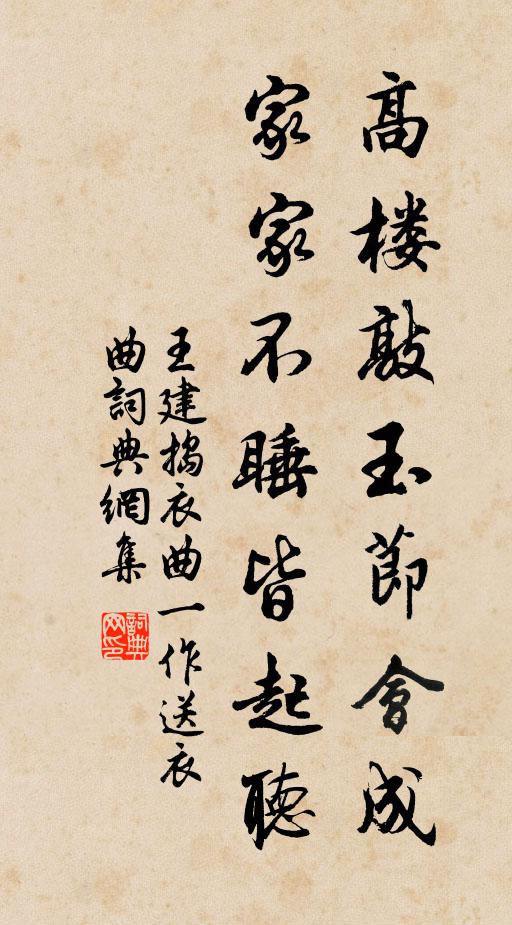 高楼敲玉節會成
家家不睡皆起聽
王建搗衣曲一作送衣
曲詞典網集
詞典网印